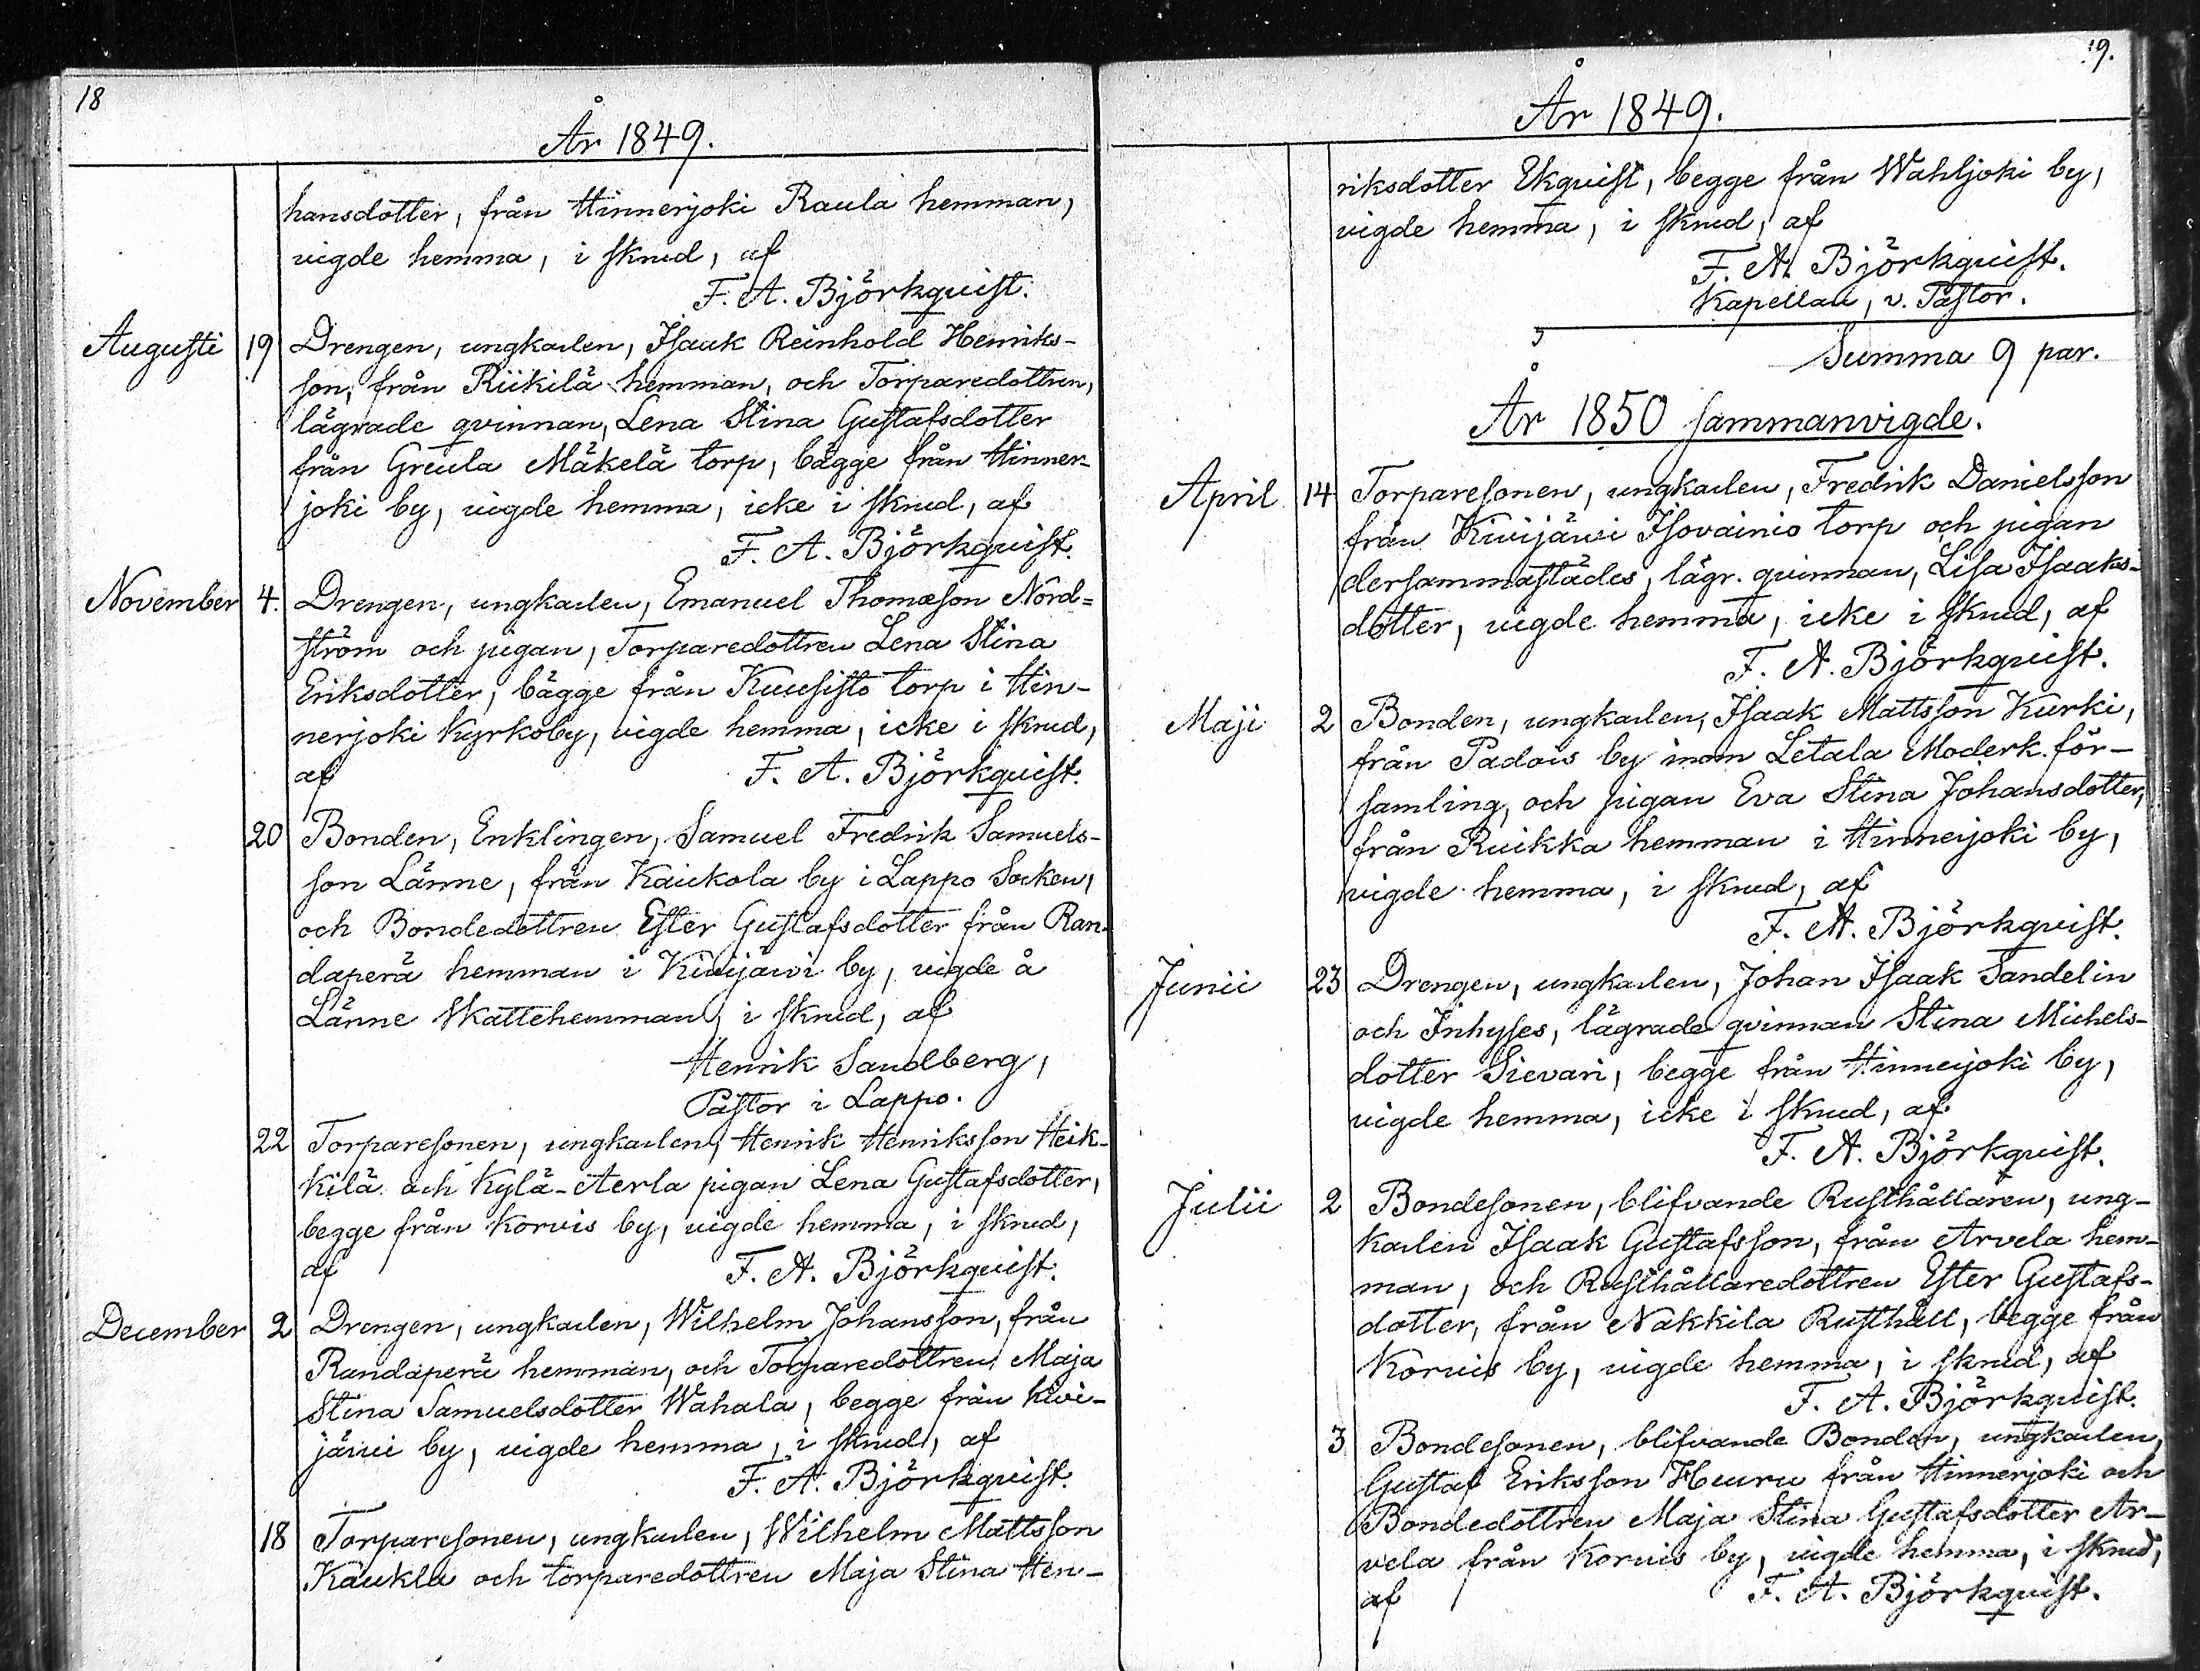 18
År 1849.
hansdotter, från Hinnerjoki Raula hemman,
vigde hemma, i skrud, af
F. A. Björkqvist.
Augusti 19 Drengen, ungkarlen, Isaak Reinhold Henriks-
son, från Riikilä hemman, och Torparedottren,
lägrade qvinnan, Lena Stina Gustafsdotter
från Greula Mäkelä torp, bägge från Hinner-
joki by, vigde hemma, icke i skrud, af
F. A. Björkqvist.
November 4. Drengen, ungkarlen, Emanuel Thomæson Nord=
ström och pigan, Torparedottren Lena Stina
Eriksdotter, bägge från Kuusisto torp i Hin-
nerjoki Kyrkoby, vigde hemma, icke i skrud,
af F. A. Björkqvist.
20 Bonden, Enklingen, Samuel Fredrik Samuels-
son Länne, från Kaukola by i Lappo Socken,
och Bondedottren Ester Gustafsdotter från Ran-
daperä hemman i Kivijärvi by, vigde å
Länne Skattehemman, i skrud, af
Henrik Sandberg,
Pastor i Lappo.
22 Torparesonen, ungkarlen, Henrik Henriksson Heik-
kilä och Kylä-Aerla pigan Lena Gustafsdotter,
begge från Korvis by, vigde hemma, i skrud,
af F. A. Björkqvist.
December 2 Drengen, ungkarlen, Wilhelm Johansson, från
Randaperä hemman, och Torparedottren Maja
Stina Samuelsdotter Wahala, begge från Kivi-
järvi by, vigde hemma, i skrud, af
F. A. Björkqvist.
18 Torparesonen, ungkarlen, Wilhelm Mattsson
Kaukla och torparedottren Maja Stina Hen-
19.
År 1849.
riksdotter Ekqvist, begge från Wahljoki by,
vigde hemma, i skrud, af
F. A. Björkqvist.
Kapellan, v. Pastor.
Summa 9 par.
År 1850 sammanvigde.
April 14 Torparesonen, ungkarlen, Fredrik Danielsson
från Kivijärvi Isovainio torp och pigan
dersammastädes, lägr. qvinnan, Lisa Isaaks-
dotter, vigde hemma, icke i skrud, af
F. A. Björkqvist.
Maji 2 Bonden, ungkarlen, Isaak Mattsson Kurki,
från Padois by inom Letala Moderk. för-
samling, och pigan Eva Stina Johansdotter,
från Ruikka hemman i Hinnerjoki by,
vigde hemma, i skrud, af
F. A. Björkqvist.
Junii 23 Drengen, ungkarlen, Johan Isaak Sandelin
och Inhyses, lägrade qvinnan Stina Michels-
dotter Sievari, begge från Hinnerjoki by,
vigde hemma, icke i skrud, af
F. A. Björkqvist.
Julii 2 Bondesonen, blifvande Rusthållaren, ung-
karlen Isaak Gustafsson, från Arvela hem-
man, och Rusthållaredottren Ester Gustafs-
dotter, från Nakkila Rusthåll, begge från
Korvis by, vigde hemma, i skrud, af
F. A. Björkqvist.
3 Bondesonen, blifvande Bonden, ungkarlen,
Gustaf Eriksson Huuru från Hinnerjoki och
Bondedottren Maja Stina Gustafsdotter Ar-
vela från Korvis by, vigde hemma, i skrud,
af F. A. Björkqvist.